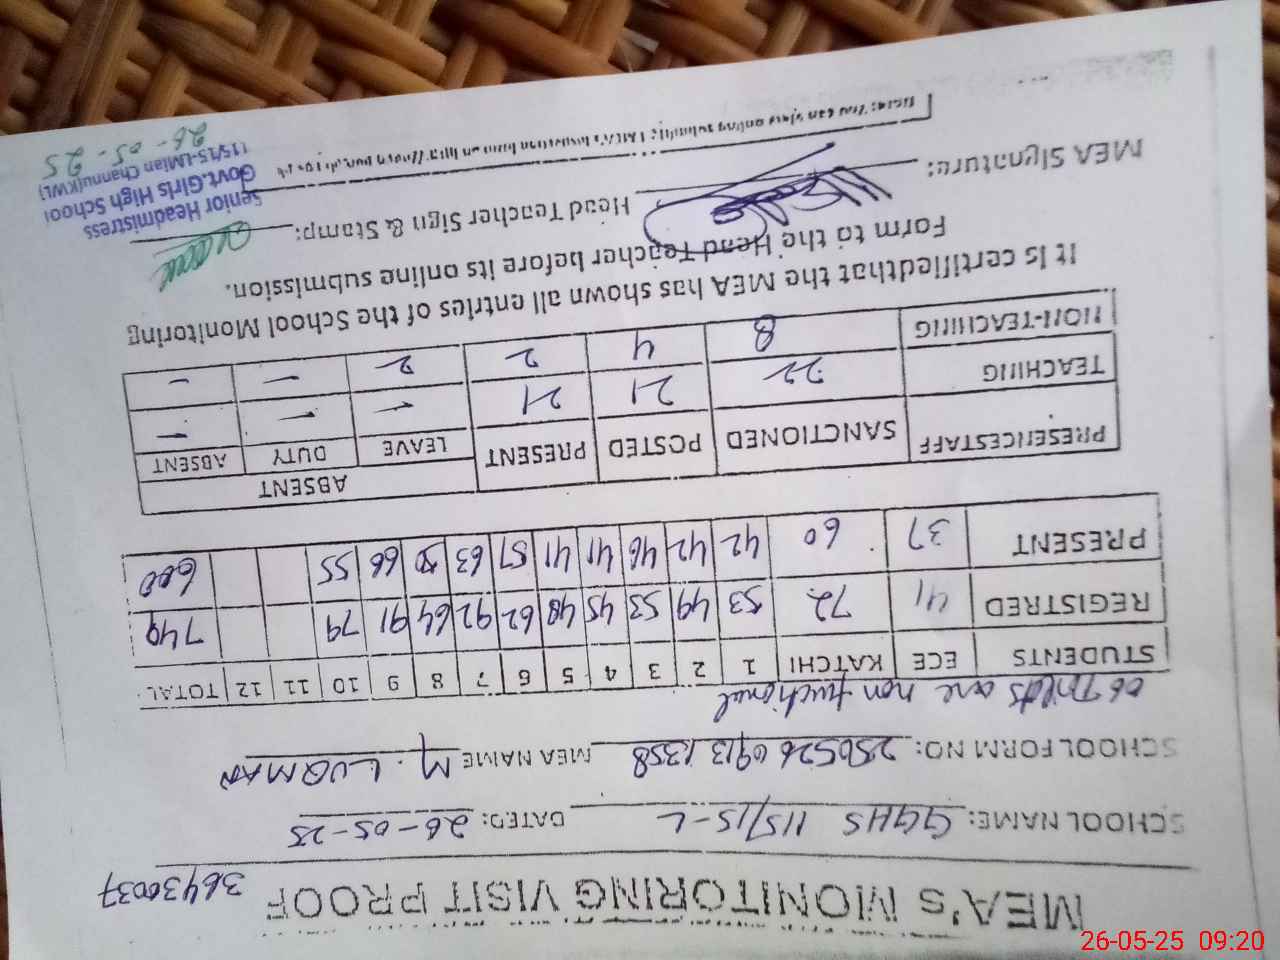 MEA's MONITORING VISIT PROOF 36430037
SCHOOL NAME: GGHS 115/15-L DATED: 26-05-25
SCHOOL FORM NO: 250526 0913 1358 MEA NAME M. LUQMAN
06 Toilets are non functional
STUDENTS ECE KATCHI 1 2 3 4 5 6 7 8 9 10 11 12 TOTAL
REGISTRED 41 72 53 49 53 45 48 62 92 64 91 79 749
PRESENT 37 60 42 42 46 41 41 57 63 50 66 55 600
PRESENCESTAFF SANCTIONED POSTED PRESENT ABSENT
LEAVE DUTY ABSENT
TEACHING 22 21 21 - - -
NON-TEACHING 8 4 2 2 - -
It is certifiedthat the MEA has shown all entries of the School Monitoring
Form to the Head Teacher before its online submission.
MEA Signature: Head Teacher Sign & Stamp:
Senior Headmistress
Govt.Girls High School
115/15-LMian Channu(KWL)
26-05-25
26-05-25 09:20